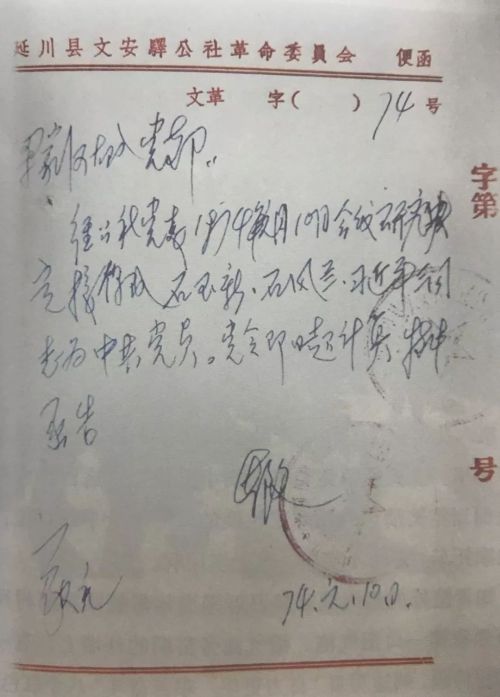 延川县文安驛公社革命委員会 便函
文革 字( ) 74 号
梁家河大队党支部:
经公社党委1974年元月10日会议研究决
定接收 石玉新、石凤兰、习近平同
志为中共党员。党令即日起计算,特此
函告
74.元.10日.
字第
号